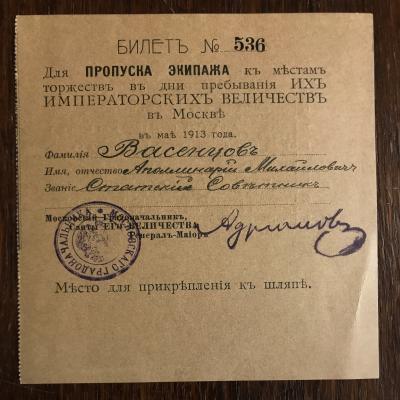 БИЛЕТЪ № 536
Для ПРОПУСКА ЭКИПАЖА къ мѣстамъ
торжествъ въ дни пребыванія ИХЪ
ИМПЕРАТОРСКИХЪ ВЕЛИЧЕСТВЪ
въ Москвѣ
въ маѣ 1913 года.
Фамилія Васенцовъ
Имя, отчество Аполинарій Михайловичъ
Званіе Статскій Совѣтникъ
Московскій Градоначальникъ,
Свиты ЕГО ВЕЛИЧЕСТВА
Генералъ-Маіоръ Адріановъ
МОСКОВСКАГО ГРАДОНАЧАЛЬНИКА
Мѣсто для прикрѣпленія къ шляпѣ.